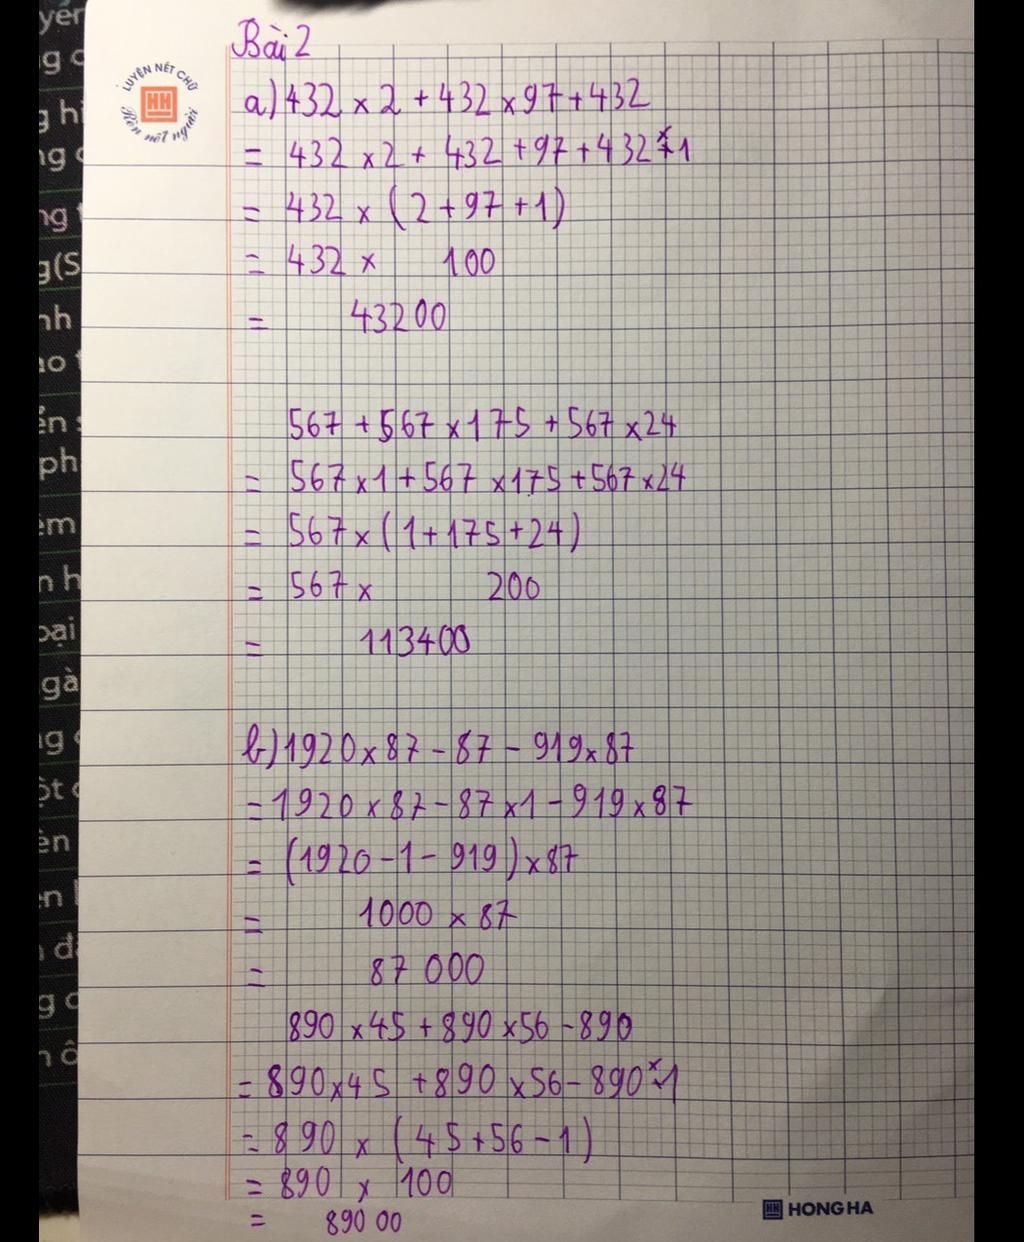 Bài 2
LUYỆN NẾT CHỮ
HH
Rèn nết người
a) 432 × 2 + 432 × 97 + 432
= 432 × 2 + 432 + 97 + 432 × 1
= 432 × (2 + 97 + 1)
= 432 × 100
= 43200
567 + 567 × 175 + 567 × 24
= 567 × 1 + 567 × 175 + 567 × 24
= 567 × (1 + 175 + 24)
= 567 × 200
= 113400
b) 1920 × 87 - 87 - 919 × 87
= 1920 × 87 - 87 × 1 - 919 × 87
= (1920 - 1 - 919) × 87
= 1000 × 87
= 87 000
890 × 45 + 890 × 56 - 890
= 890 × 45 + 890 × 56 - 890 × 1
= 890 × (45 + 56 - 1)
= 890 × 100
= 890 00
HH HONG HA